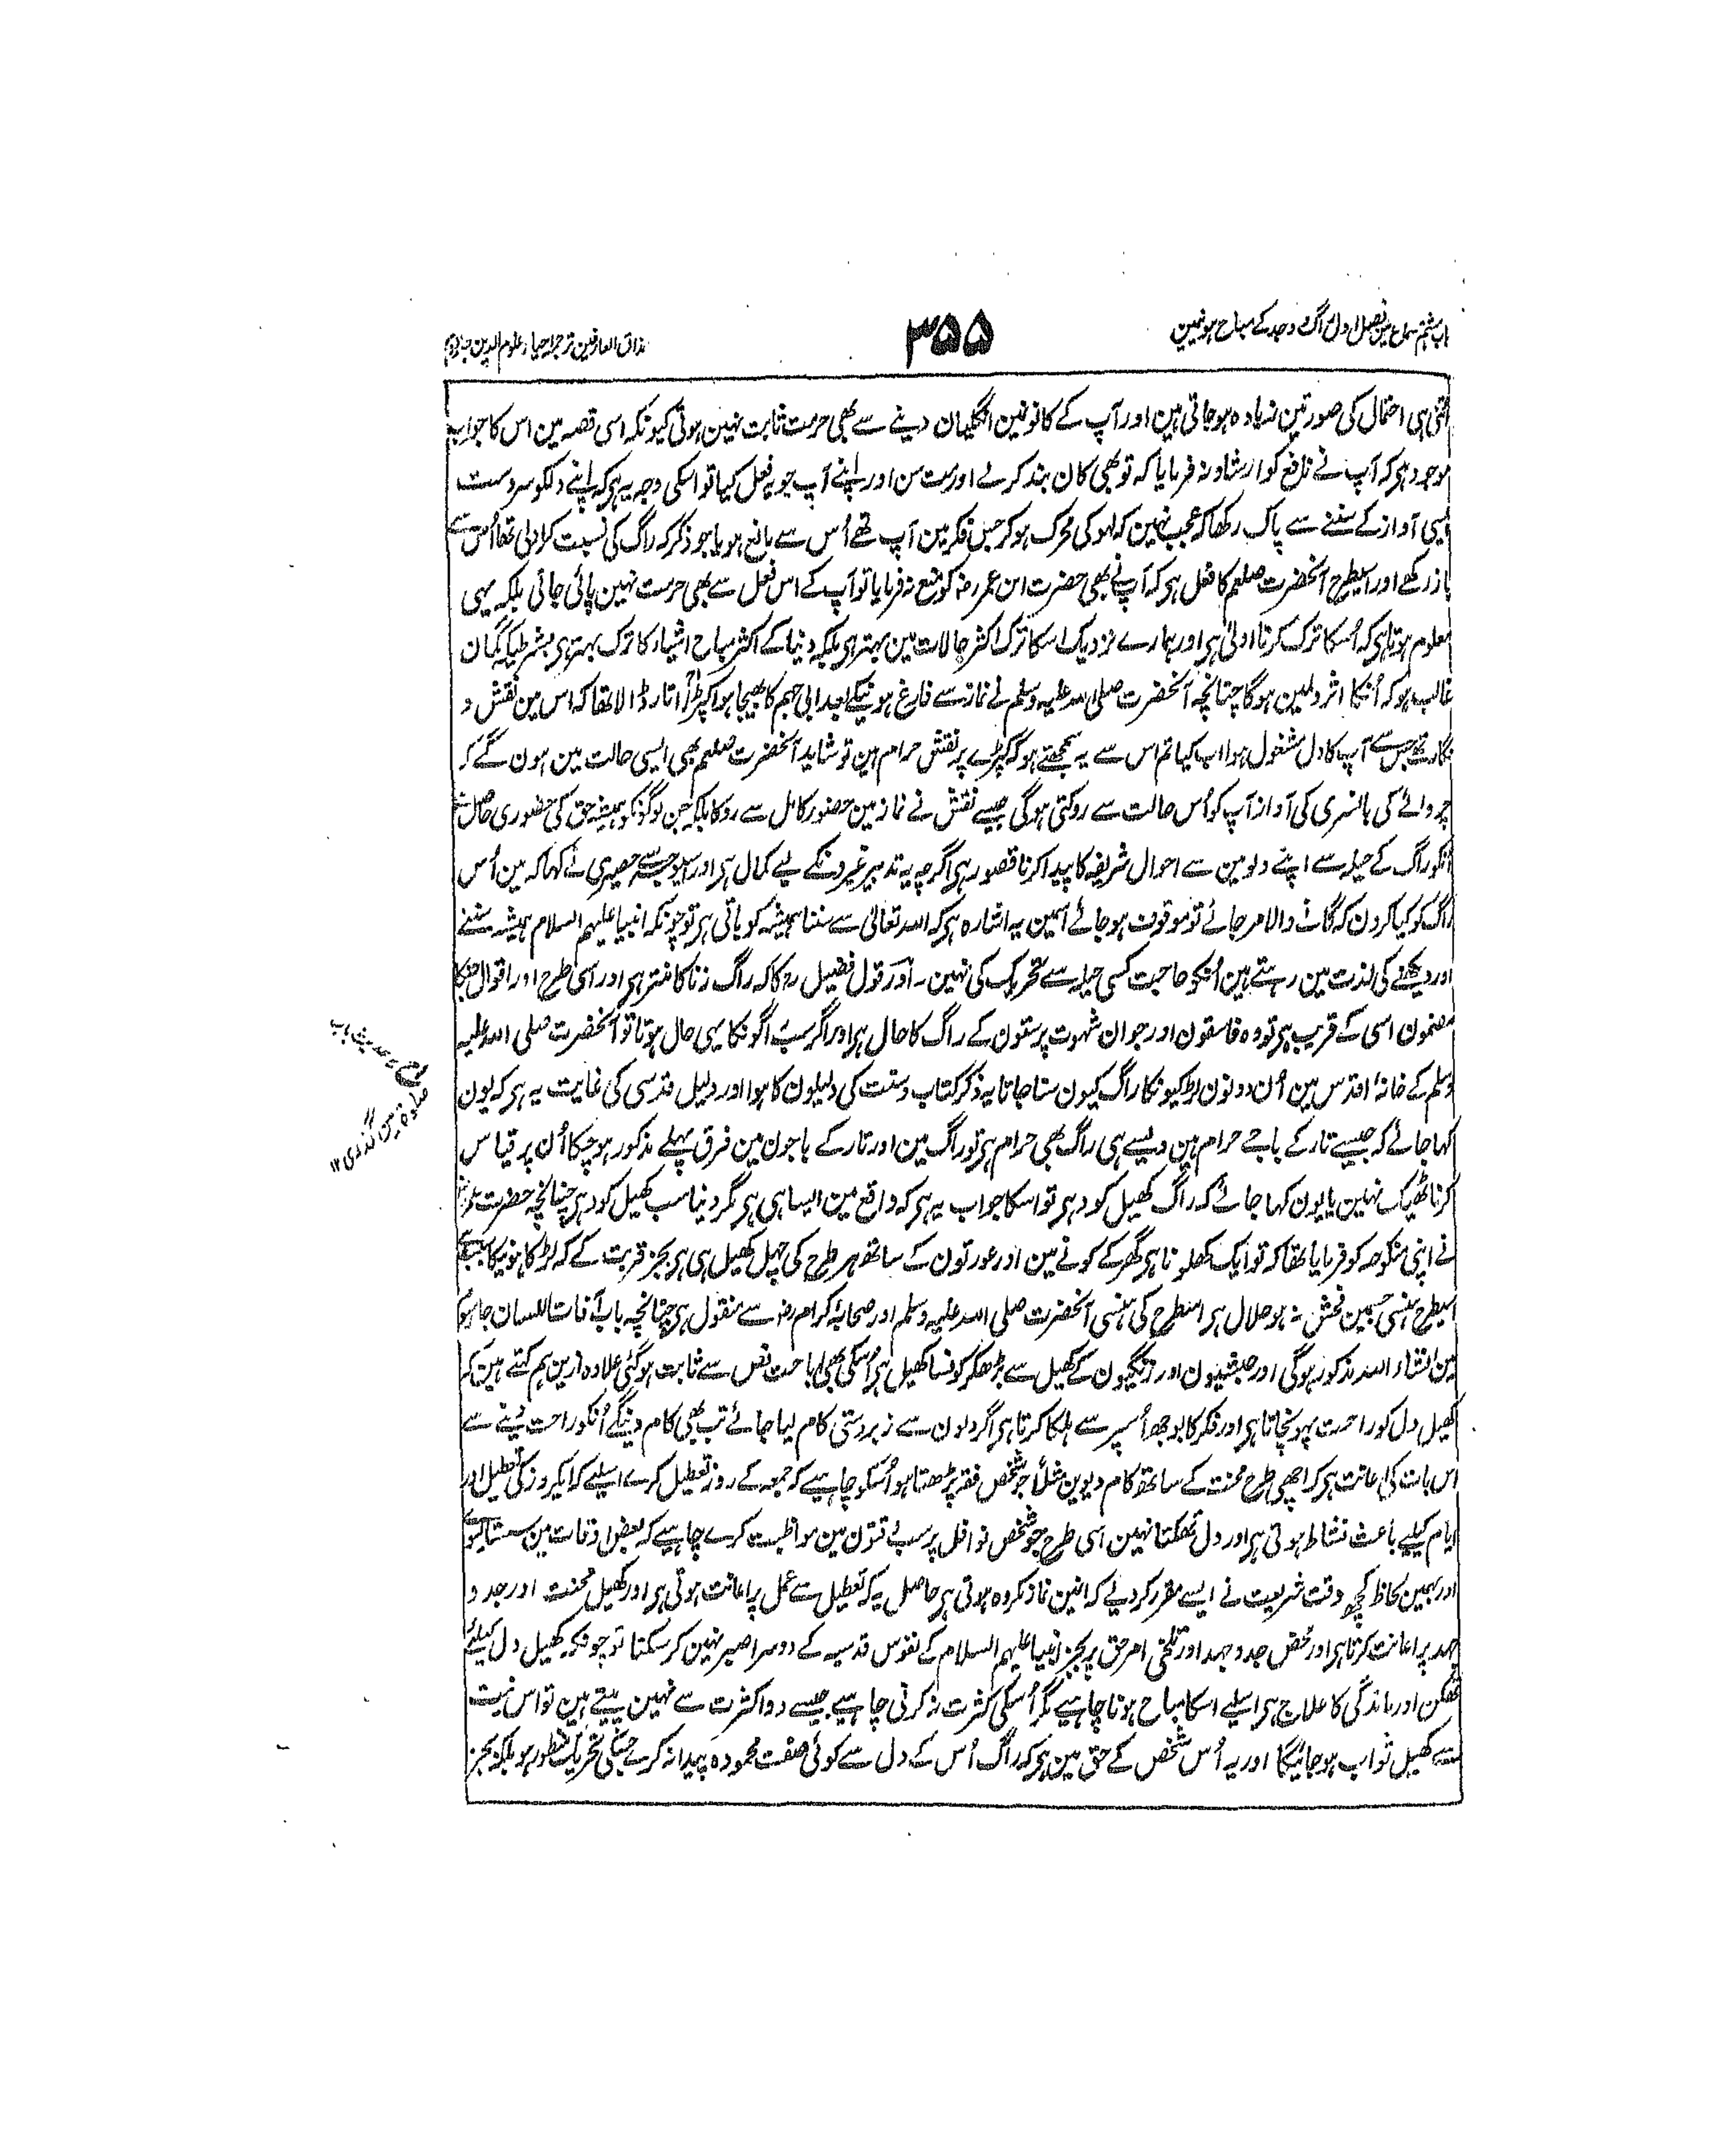 باب ہشتم سماع میں فصل اول راگ و وجد کے مباح ہونیمین
۳۵۵
مذاق العارفین ترجمہ احیاء علوم الدین جلد دوم
اتنی ہی احتمال کی صورتین زیادہ ہوجاتی ہین اور آپ کے کانونمین انگلیان دینے سے بھی حرمت ثابت نہین ہوتی کیونکہ اسی قصہ مین اس کا جواب
موجود ہر کہ آپ نے نافع کو ارشاد نہ فرمایا کہ تو بھی کان بند کرلے اور مت سن اور اپنے آپ جو یہ فعل کیا تو اسکی وجہ یہ ہر کہ اپنے دلکو سردست
ایسی آواز کے سننے سے پاک رکھا کہ عجب نہین کہ لہو کی محرک ہوکر جس فکر مین آپ تھے اُس سے مانع ہو یا جو ذکر کہ راگ کی نسبت کر اولی تھا اُس سے
باز رکھے اور اسیطرح آنحضرت صلعم کا فعل ہر کہ آپنے بھی حضرت ابن عمر رضہ کو منع نہ فرمایا تو آپ کے اس فعل سے بھی حرمت نہین پائی جاتی بلکہ یہی
معلوم ہوتا ہر کہ اُسکا ترک کرنا اولیٰ ہر اور ہمارے نزدیک اسکا ترک اکثر حالات مین بہتر ہر بلکہ دنیا کے اکثر مباح اشیاء کا ترک بہتر ہر بشرطیکہ گمان
غالب ہو کہ اُنکا اثر دلمین ہوگا چنانچہ آنحضرت صلی اللہ علیہ وسلم نے نماز سے فارغ ہونیکے بعد ابی جہم کا بھیجا ہوا کپڑا اتار ڈالا تھا کہ اس مین نقش و
نگار تھے جس سے آپ کا دل مشغول ہوا اب کیا تم اس سے یہ سمجھتے ہو کہ کپڑے پر نقش حرام ہین تو شاید آنحضرت صلعم بھی ایسی حالت مین ہون گے کہ
چرواہے کی بانسری کی آواز آپ کو اُس حالت سے روکتی ہوگی جیسے نقش نے نماز مین حضور کامل سے روکا بلکہ جن لوگونکو ہمیشہ حق کی حضوری حاصل ہے
اُنکو راگ کے حیلہ سے اپنے دلون مین سے احوال شریفہ کا پیدا کرنا قصور ہر اگرچہ یہ تدبیر غیرونکے لیے کمال ہر اور اسیوجہ سے حصیری نے کہا کہ مین اُس
راگ کو کیا کرون کہ گانے والا مر جائے تو موقوف ہوجائے اسمین یہ اشارہ ہر کہ اللہ تعالیٰ سے سننا ہمیشہ کو باقی ہر تو چونکہ انبیا علیہم السلام ہمیشہ سننے
اور دیکھنے کی لذت مین رہتے ہین اُنکو حاجت کسی حیلہ سے تحریک کی نہین۔ اور قول فضیل رہ کا کہ راگ زنا کا منتر ہر اور اسی طرح اور اقوال جنکا
مضمون اسی کے قریب ہر تو وہ فاسقون اور جوان شہوت پرستون کے راگ کا حال ہر اور اگر سب راگونکا یہی حال ہوتا تو آنحضرت صلی اللہ علیہ
وسلم کے خانۂ اقدس مین اُن دونون لڑکیونکا راگ کیون سنا جاتا یہ ذکر کتاب و سنت کی دلیلون کا ہوا اور دلیل قدسی کی غایت یہ ہر کہ یون
کہا جائے کہ جیسے تار کے باجے حرام ہین ویسے ہی راگ بھی حرام ہر تو راگ مین اور تار کے باجون مین فرق پہلے مذکور ہوچکا اُن پر قیاس
کرنا ٹھیک نہین یا یون کہا جائے کہ راگ کھیل کود ہر تو اسکا جواب یہ ہر کہ واقع مین ایسا ہی ہر مگر دنیا سب کھیل کود ہر چنانچہ حضرت عمر رض
نے اپنی منکوحہ کو فرمایا تھا کہ تو ایک کھلونا ہر گھر کے کونے مین اور عورتون کے ساتھ ہر طرح کی چہل کھیل ہی ہر بجز قربت کے کہ لڑکا ہونیکا سبب ہے
اسیطرح ہنسی جسمین فحش نہ ہو حلال ہر اسطرح کی ہنسی آنحضرت صلی اللہ علیہ وسلم اور صحابۂ کرام رضہ سے منقول ہر چنانچہ باب آفات اللسان جلد سوم
مین انشاء اللہ مذکور ہوگی اور حبشیون اور زنگیون کے کھیل سے بڑھکر کونسا کھیل ہر اُسکی بھی اباحت نص سے ثابت ہوگئی علاوہ ازین ہم کہتے ہین کہ
کھیل دل کو راحت پہونچاتا ہر اور فکر کا بوجھ اُسپر سے ہلکا کرتا ہر اگر دلون سے زبردستی کام لیا جائے تب بھی کام دینگے اُنکو راحت دینے سے
اس بات کی اعانت ہر کہ اچھی طرح محنت کے ساتھ کام دیوین مثلاً جو شخص فقہ پڑھتا ہو اُسکو چاہیے کہ جمعہ کے روز تعطیل کرے اسلیے کہ ایکروز کی تعطیل اور
ایام کیلیے باعث نشاط ہوتی ہر اور دل تھکتا نہین اسی طرح جو شخص نوافل پر سب وقتون مین مواظبت کرے چاہیے کہ بعض اوقات مین سستا لیوے
اور بہمین لحاظ کچھ وقت شریعت نے ایسے مقرر کردیے کہ انمین نماز مکروہ ہوتی ہر حاصل یہ کہ تعطیل سے عمل پر اعانت ہوتی ہر اور کھیل محنت اور جد و
جہد پر اعانت کرتا ہر اور محض جد و جہد اور تلخی امر حق پر بجز انبیا علیہم السلام کے نفوس قدسیہ کے دوسرا صبر نہین کرسکتا تو چونکہ کھیل دل کیلئے
تھکن اور ماندگی کا علاج ہر اسلیے اسکا مباح ہونا چاہیے مگر اُسکی کثرت نہ کرنی چاہیے جیسے دوا کثرت سے نہین پیتے ہین تو اس نیت
سے کھیل ثواب ہوجائیگا اور یہ اُس شخص کے حق مین ہر کہ راگ اُس کے دل سے کوئی صفت محمودہ پیدا نہ کرے جسکی تحریک منظور ہو بلکہ بجز
یہ حدیث باب
صلوٰۃ مین گذری ۱۲